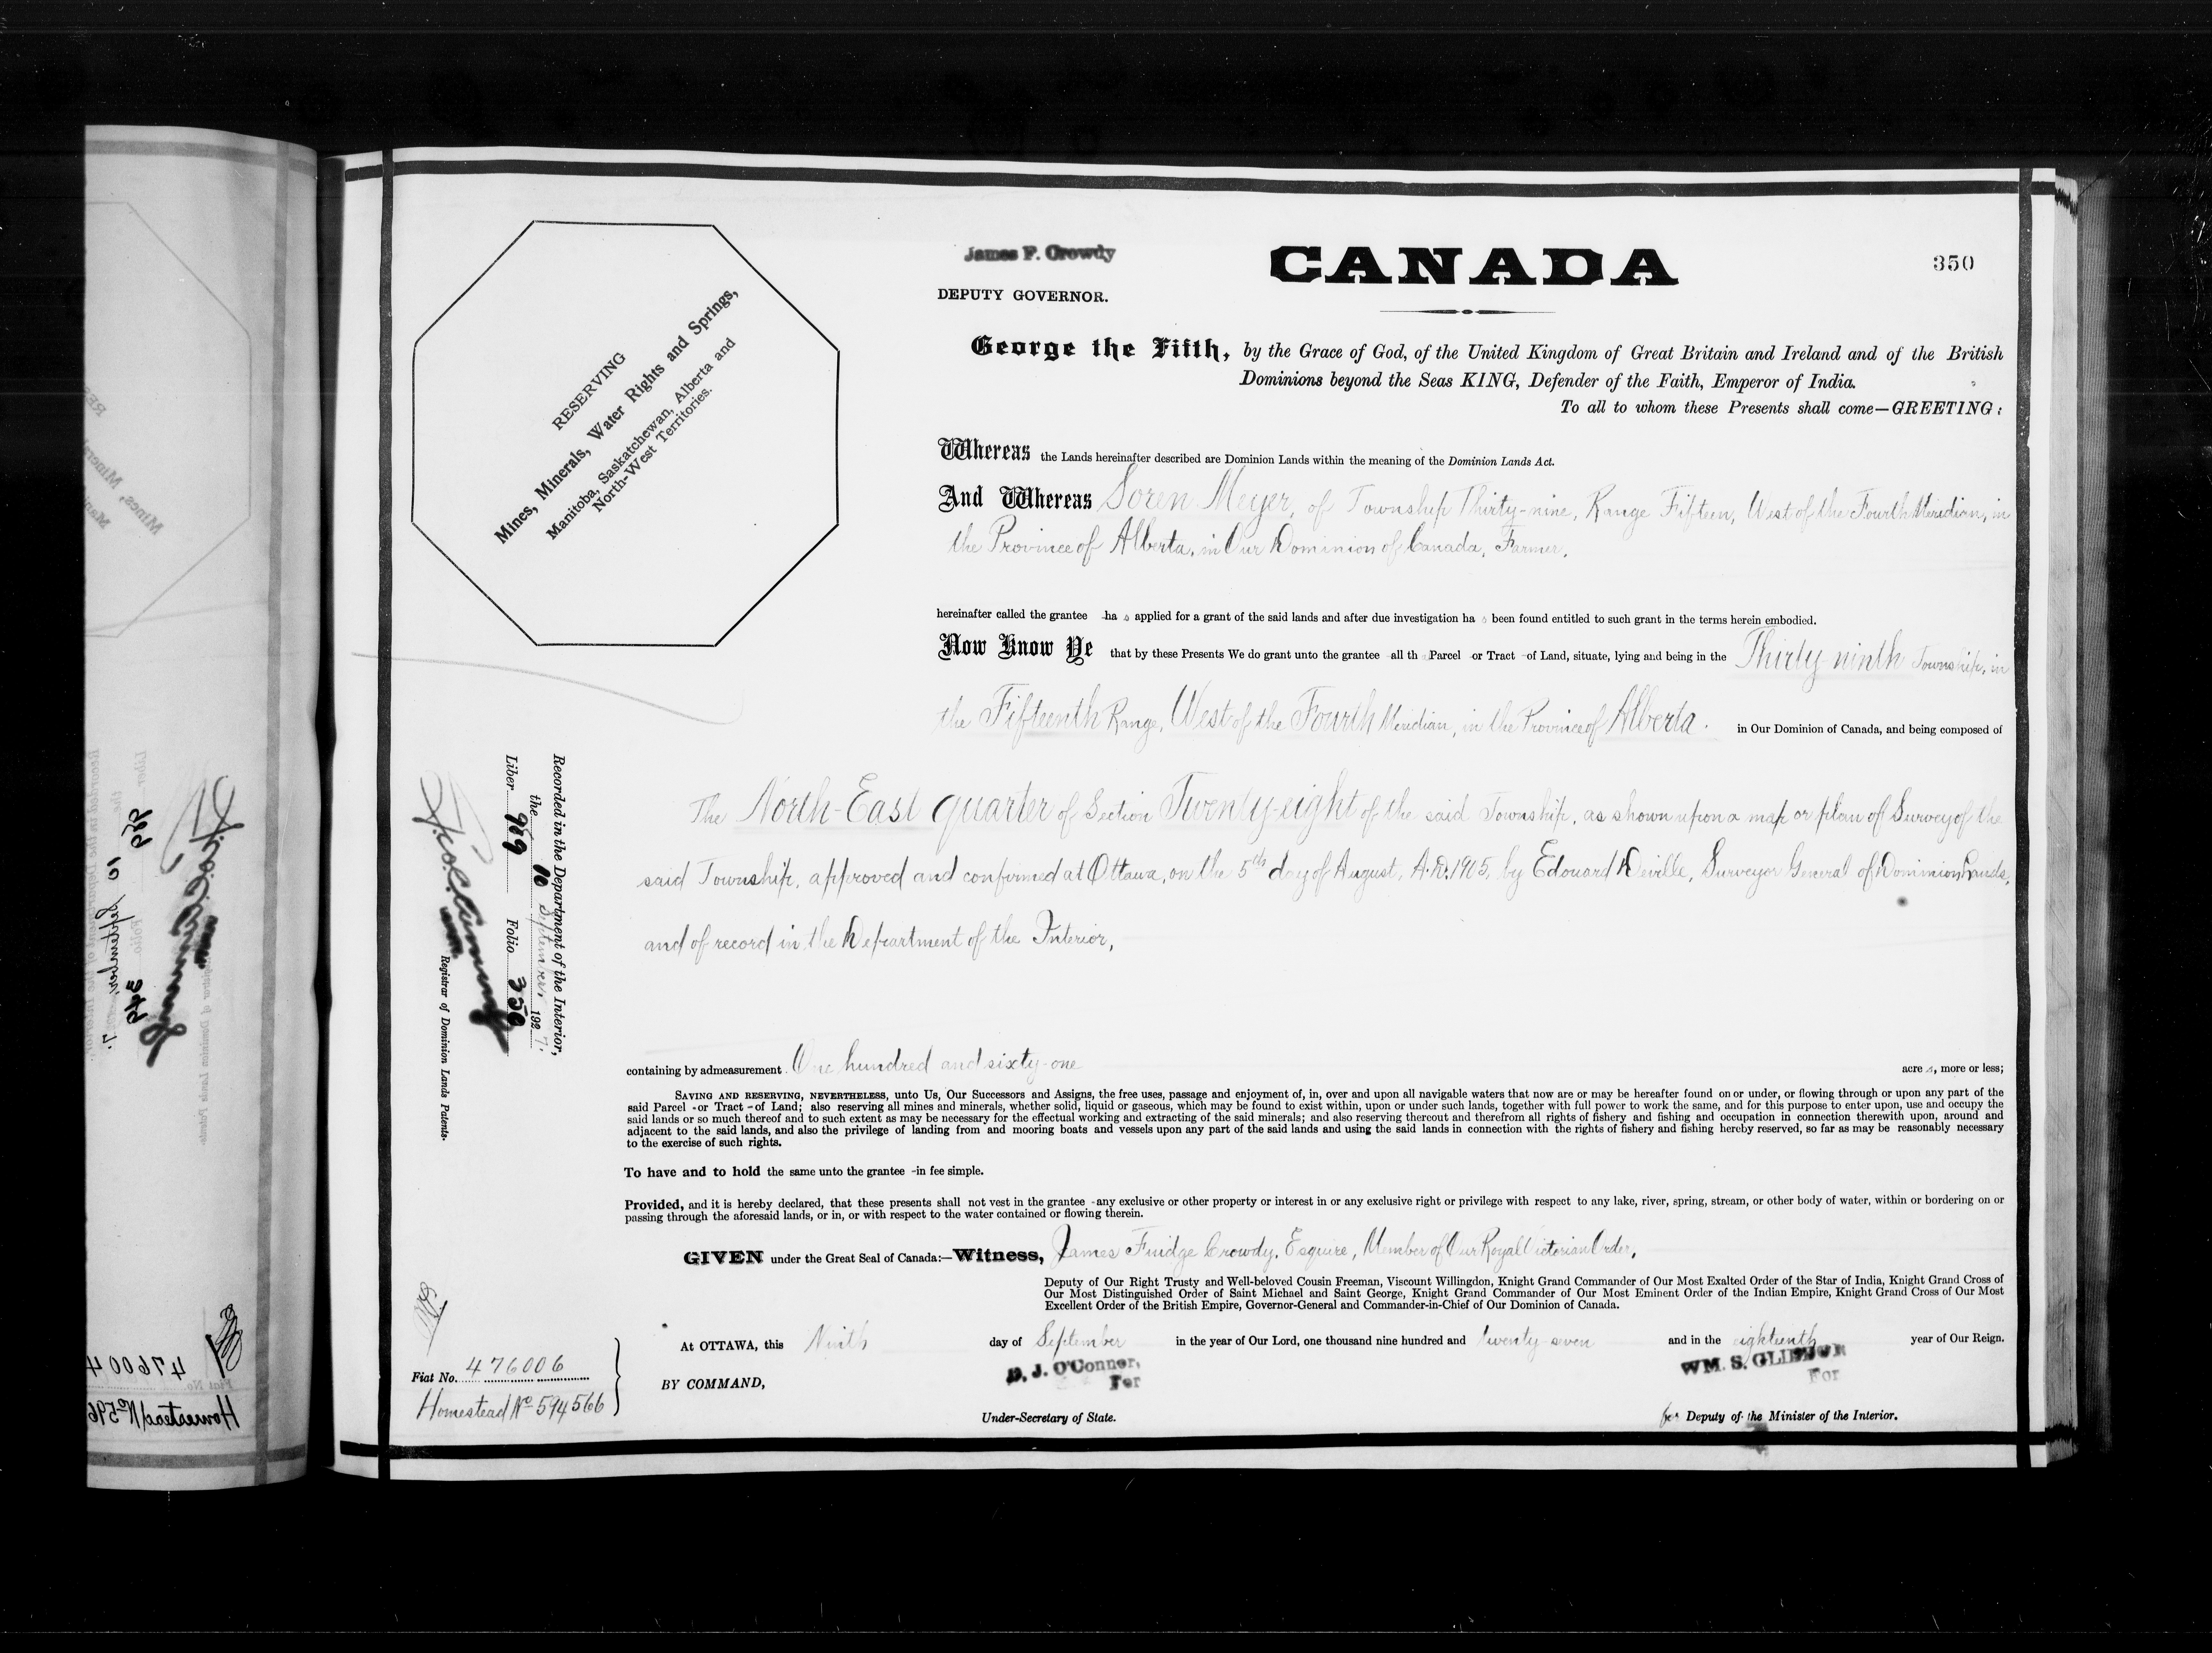 James F. Crowdy
DEPUTY GOVERNOR.
CANADA
350
RESERVING
Mines, Minerals, Water Rights and Springs,
Manitoba, Saskatchewan, Alberta and
North-West Territories.
George the Fifth, by the Grace of God, of the United Kingdom of Great Britain and Ireland and of the British
Dominions beyond the Seas KING, Defender of the Faith, Emperor of India.
To all to whom these Presents shall come—GREETING:
Whereas the Lands hereinafter described are Dominion Lands within the meaning of the Dominion Lands Act.
And Whereas Soren Meyer, of Township Thirty-nine, Range Fifteen, West of the Fourth Meridian, in
the Province of Alberta, in Our Dominion of Canada, Farmer,
hereinafter called the grantee -ha s applied for a grant of the said lands and after due investigation ha s been found entitled to such grant in the terms herein embodied.
Now Know Ye that by these Presents We do grant unto the grantee -all th Parcel -or Tract -of Land, situate, lying and being in the Thirty-ninth Township, in
the Fifteenth Range, West of the Fourth Meridian, in the Province of Alberta. in Our Dominion of Canada, and being composed of
The North-East quarter of Section Twenty-eight of the said Township, as shown upon a map or plan of Survey of the
said Township, approved and confirmed at Ottawa, on the 5th day of August, A.D. 1905, by Edouard Deville, Surveyor General of Dominion Lands,
and of record in the Department of the Interior,
Recorded in the Department of the Interior,
the 10 September, 1927.
Liber 969 Folio 350
Registrar of Dominion Lands Patents.
containing by admeasurement One hundred and sixty-one acre s, more or less;
SAVING AND RESERVING, NEVERTHELESS, unto Us, Our Successors and Assigns, the free uses, passage and enjoyment of, in, over and upon all navigable waters that now are or may be hereafter found on or under, or flowing through or upon any part of the
said Parcel -or Tract -of Land; also reserving all mines and minerals, whether solid, liquid or gaseous, which may be found to exist within, upon or under such lands, together with full power to work the same, and for this purpose to enter upon, use and occupy the
said lands or so much thereof and to such extent as may be necessary for the effectual working and extracting of the said minerals; and also reserving thereout and therefrom all rights of fishery and fishing and occupation in connection therewith upon, around and
adjacent to the said lands, and also the privilege of landing from and mooring boats and vessels upon any part of the said lands and using the said lands in connection with the rights of fishery and fishing hereby reserved, so far as may be reasonably necessary
to the exercise of such rights.
To have and to hold the same unto the grantee -in fee simple.
Provided, and it is hereby declared, that these presents shall not vest in the grantee -any exclusive or other property or interest in or any exclusive right or privilege with respect to any lake, river, spring, stream, or other body of water, within or bordering on or
passing through the aforesaid lands, or in, or with respect to the water contained or flowing therein.
GIVEN under the Great Seal of Canada:—Witness, James Fuidge Crowdy, Esquire, Member of Our Royal Victorian Order,
Deputy of Our Right Trusty and Well-beloved Cousin Freeman, Viscount Willingdon, Knight Grand Commander of Our Most Exalted Order of the Star of India, Knight Grand Cross of
Our Most Distinguished Order of Saint Michael and Saint George, Knight Grand Commander of Our Most Eminent Order of the Indian Empire, Knight Grand Cross of Our Most
Excellent Order of the British Empire, Governor-General and Commander-in-Chief of Our Dominion of Canada.
At OTTAWA, this Ninth day of September in the year of Our Lord, one thousand nine hundred and twenty-seven and in the eighteenth year of Our Reign.
BY COMMAND,
D. J. O'Connor,
For
Under-Secretary of State.
WM. S. GLIDDON
For
for Deputy of the Minister of the Interior.
Fiat No. 476006
Homestead No 594566